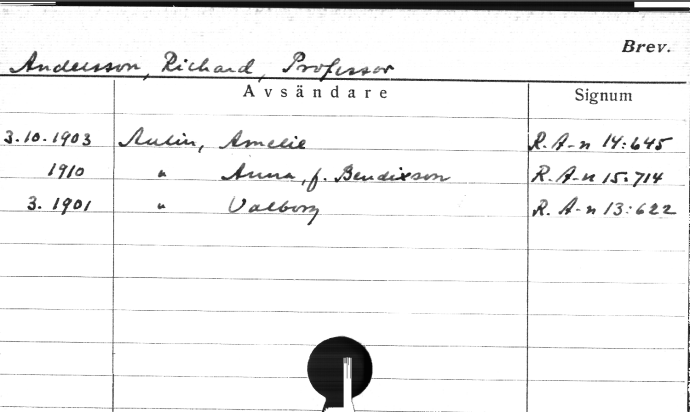 Brev.
Andersson, Richard, Professor
Avsändare Signum
3.10.1903 Aulin, Amelie R.A-n 14:645
1910 " Anna, f. Bendixson R.A-n 15.714
3. 1901 " Valborg R.A-n 13:622